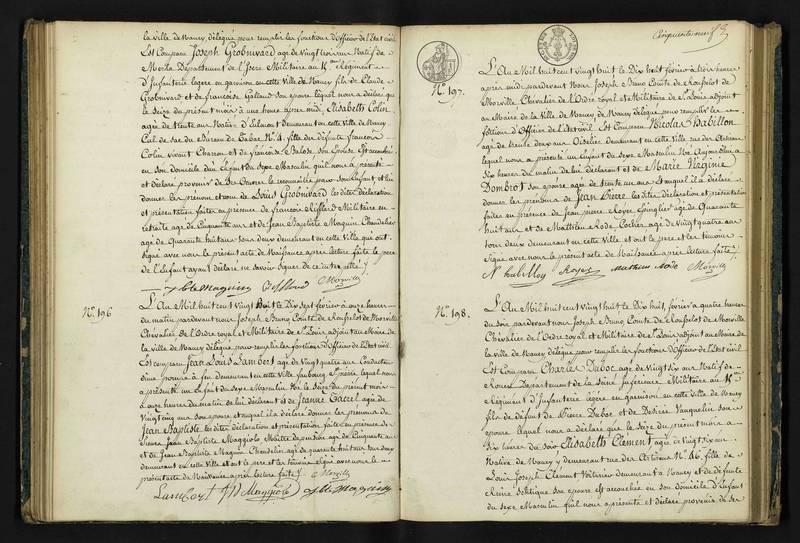 la ville de Nancy, délégué pour remplir les fonctions d'Officier de l'Etat civil
Est Comparu Joseph Grobuvard age de Vingt trois ans Natif de
Département de l'Isere Militaire au 4eme Régiment
d'Infanterie legere en garnison en cette Ville de Nancy fils de Claude
Grobuvard et de françoise Galland son epouse lequel nous a déclaré que
le Seize du présent mois à une heure apres midi Elisabeth Colin
agée de trente ans Native d' demeurant en cette Ville de Nancy
Cul de sac du Bureau de Tabac No. 4. fille des défunts françois
Colin vivant Charon et de françoise Balosse son Epouse Est accouchée
en son domicile d'un Enfant du sexe Masculin qu'il nous a présenté
et déclaré provenir de Ses Oeuvres le reconnaitre pour son Enfant, et lui
donner les prénom et nom de Louis Grobuvard les dites Déclaration
et présentation faites en présence de françois Militaire en
retraite age de Cinquante ans et de Jean Baptiste Maguin Chandelier
age de Quarante huit ans tous deux demeurant en cette Ville qui ont
Signé avec nous le présent acte de Naissance après lecture faite le pere
de l'Enfant ayant déclaré ne savoir signer de ce interpellé
Maguin Morville
No. 196
L'An Mil huit cent Vingt huit le Dix Sept février à onze heures
du matin pardevant nous Joseph Bruno Comte de Roufselot de Morville
Chevalier de l'Ordre royal et Militaire de St. Louis adjoint au Maire de
la ville de Nancy délégué pour remplir les fonctions d'Officier de l'Etat civil.
Est comparu Jean Louis Lambert age de Vingt quatre ans Conducteur
d'une pompe à feu demeurant en cette Ville faubourg St. pierre lequel nous
a présenté un Enfant du sexe Masculin Né le Seize du présent mois
à onze heures du matin de lui déclarant et de Jeanne Cacrel age de
Vingt cinq ans son epouse et auquel il a déclaré donner les prénoms de
Jean Baptiste les dites déclaration et présentation faites en présence de
Pierre Jean Baptiste Maggiolo Maître de pension age de Cinquante ans
et de Jean Baptiste Maguin Chandelier age de quarante huit ans tous deux
demeurant en cette Ville et ont le pere et les témoins signé avec nous le
présent acte de Naissance après lecture faite Morville
Lambert Maggiolo Maguin
Cinquante neuf
No. 197.
L'An Mil huit cent vingt huit le Dix huit février à trois heures
apres midi pardevant Nous Joseph Bruno Comte de Roufselot de
Morville Chevalier de l'Ordre royal et Militaire de St. Louis adjoint
au Maire de la Ville de Nancy délégué pour remplir les
fonctions d'Officier de l'Etat civil. Est Comparu Nicolas Habillon
age de trente deux ans Oiselier demeurant en cette Ville rue des Artisans
lequel nous a présenté un Enfant du sexe Masculin Né Aujourd'hui à
Six heures du matin de lui déclarant et de Marie Virginie
Dombrot son epouse agée de trente un ans et auquel il a déclaré
donner les prénoms de Jean Pierre les dites Déclaration et présentation
faites en présence de Jean pierre Royer Epinglier age de Quarante
huit ans et de Mathieu Rode Cocher age de Vingt quatre ans
tous deux demeurant en cette Ville et ont le pere et les témoins
Signé avec nous le présent acte de Naissance après lecture faite
N habillon Royer mathieu Rode Morville
No. 198.
L'An Mil huit cent Vingt huit le Dix huit, février à quatre heures
du soir pardevant nous Joseph Bruno Comte de Roufselot de Morville
Chevalier de l'Ordre royal et Militaire de St. Louis adjoint au Maire de
la Ville de Nancy délégué pour remplir les fonctions d'Officier de l'Etat civil
Est Comparu Charles Duboc age de Vingt six ans Natif de
Rouen Département de la Seine inférieure Militaire au 4eme
Régiment d'Infanterie légere en garnison en cette Ville de Nancy
fils de défunt de Pierre Duboc et de Desirée Vauquelin son
epouse lequel nous a déclaré que le Seize du présent mois à
Dix heures du soir Elisabeth Clement agée de Vingt six ans
Native de Nancy y demeurant rue des Artisans No. 66. fille de
Louis Joseph Clément Voiturier demeurant à Nancy et de défunte
Reine son epouse est accouchée en son domicile d'un Enfant
du sexe Masculin qu'il nous a présenté et déclaré provenir de ses